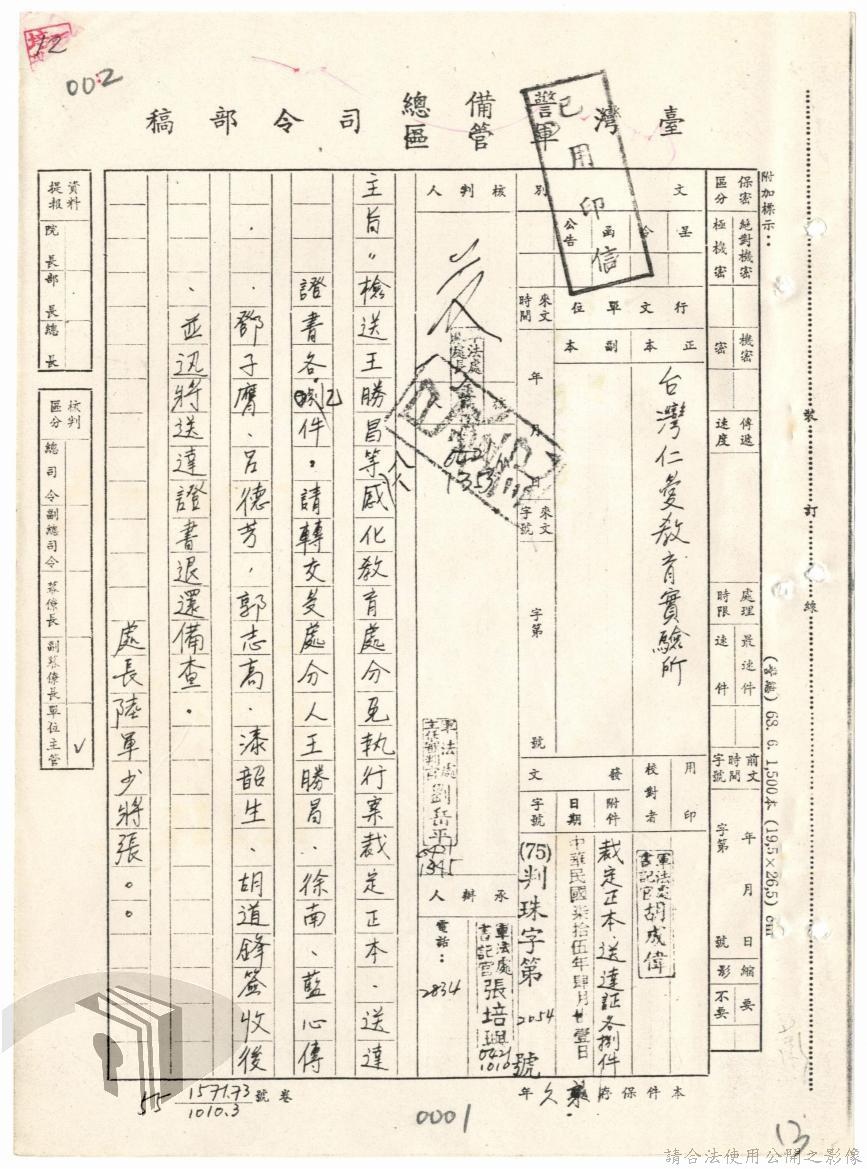 12
002
臺灣警備總司令部稿
軍管區
已用印信
裝訂線
附加標示：
保密區分
絕對機密
極機密
機密
密
傳遞速度
處理時限
最速件
速件
前文時間字號
年月日
字第號
縮影
要
不要
(警總) 68. 6. 1,500本 (19.5×26.5) cm
文別
呈
令
函
公告
行文單位
正本
副本
台灣仁愛教育實驗所
來文時間
年月日
來文字號
字第號
用印
校對者
軍法處書記官胡成偉
發文
附件
裁定正本、送達証各捌件
日期
中華民國柒拾伍年肆月廿壹日
字號
(75)判珠字第2054號
核判人
軍法處
0421
1353
軍法處主任審判官劉岳平
0421
1345
承辦人
軍法處書記官張培興
0421
1010
電話：
2834
主旨：檢送王勝昌等感化教育處分免執行案裁定正本、送達
八人
證書各捌件。請轉交受處分人王勝昌、徐南、藍心傳
、鄧子膺、呂德芳、郭志高、漆韶生、胡道鋒簽收後
、並迅將送達證書退還備查。
處長陸軍少將張。。
資料提報
院長
部長
總長
核判區分
總司令
副總司令
幕僚長
副幕僚長
單位主管
✓
本件保存永久年
卷號
1571.73
1010.3
55
0001
13
請合法使用公開之影像